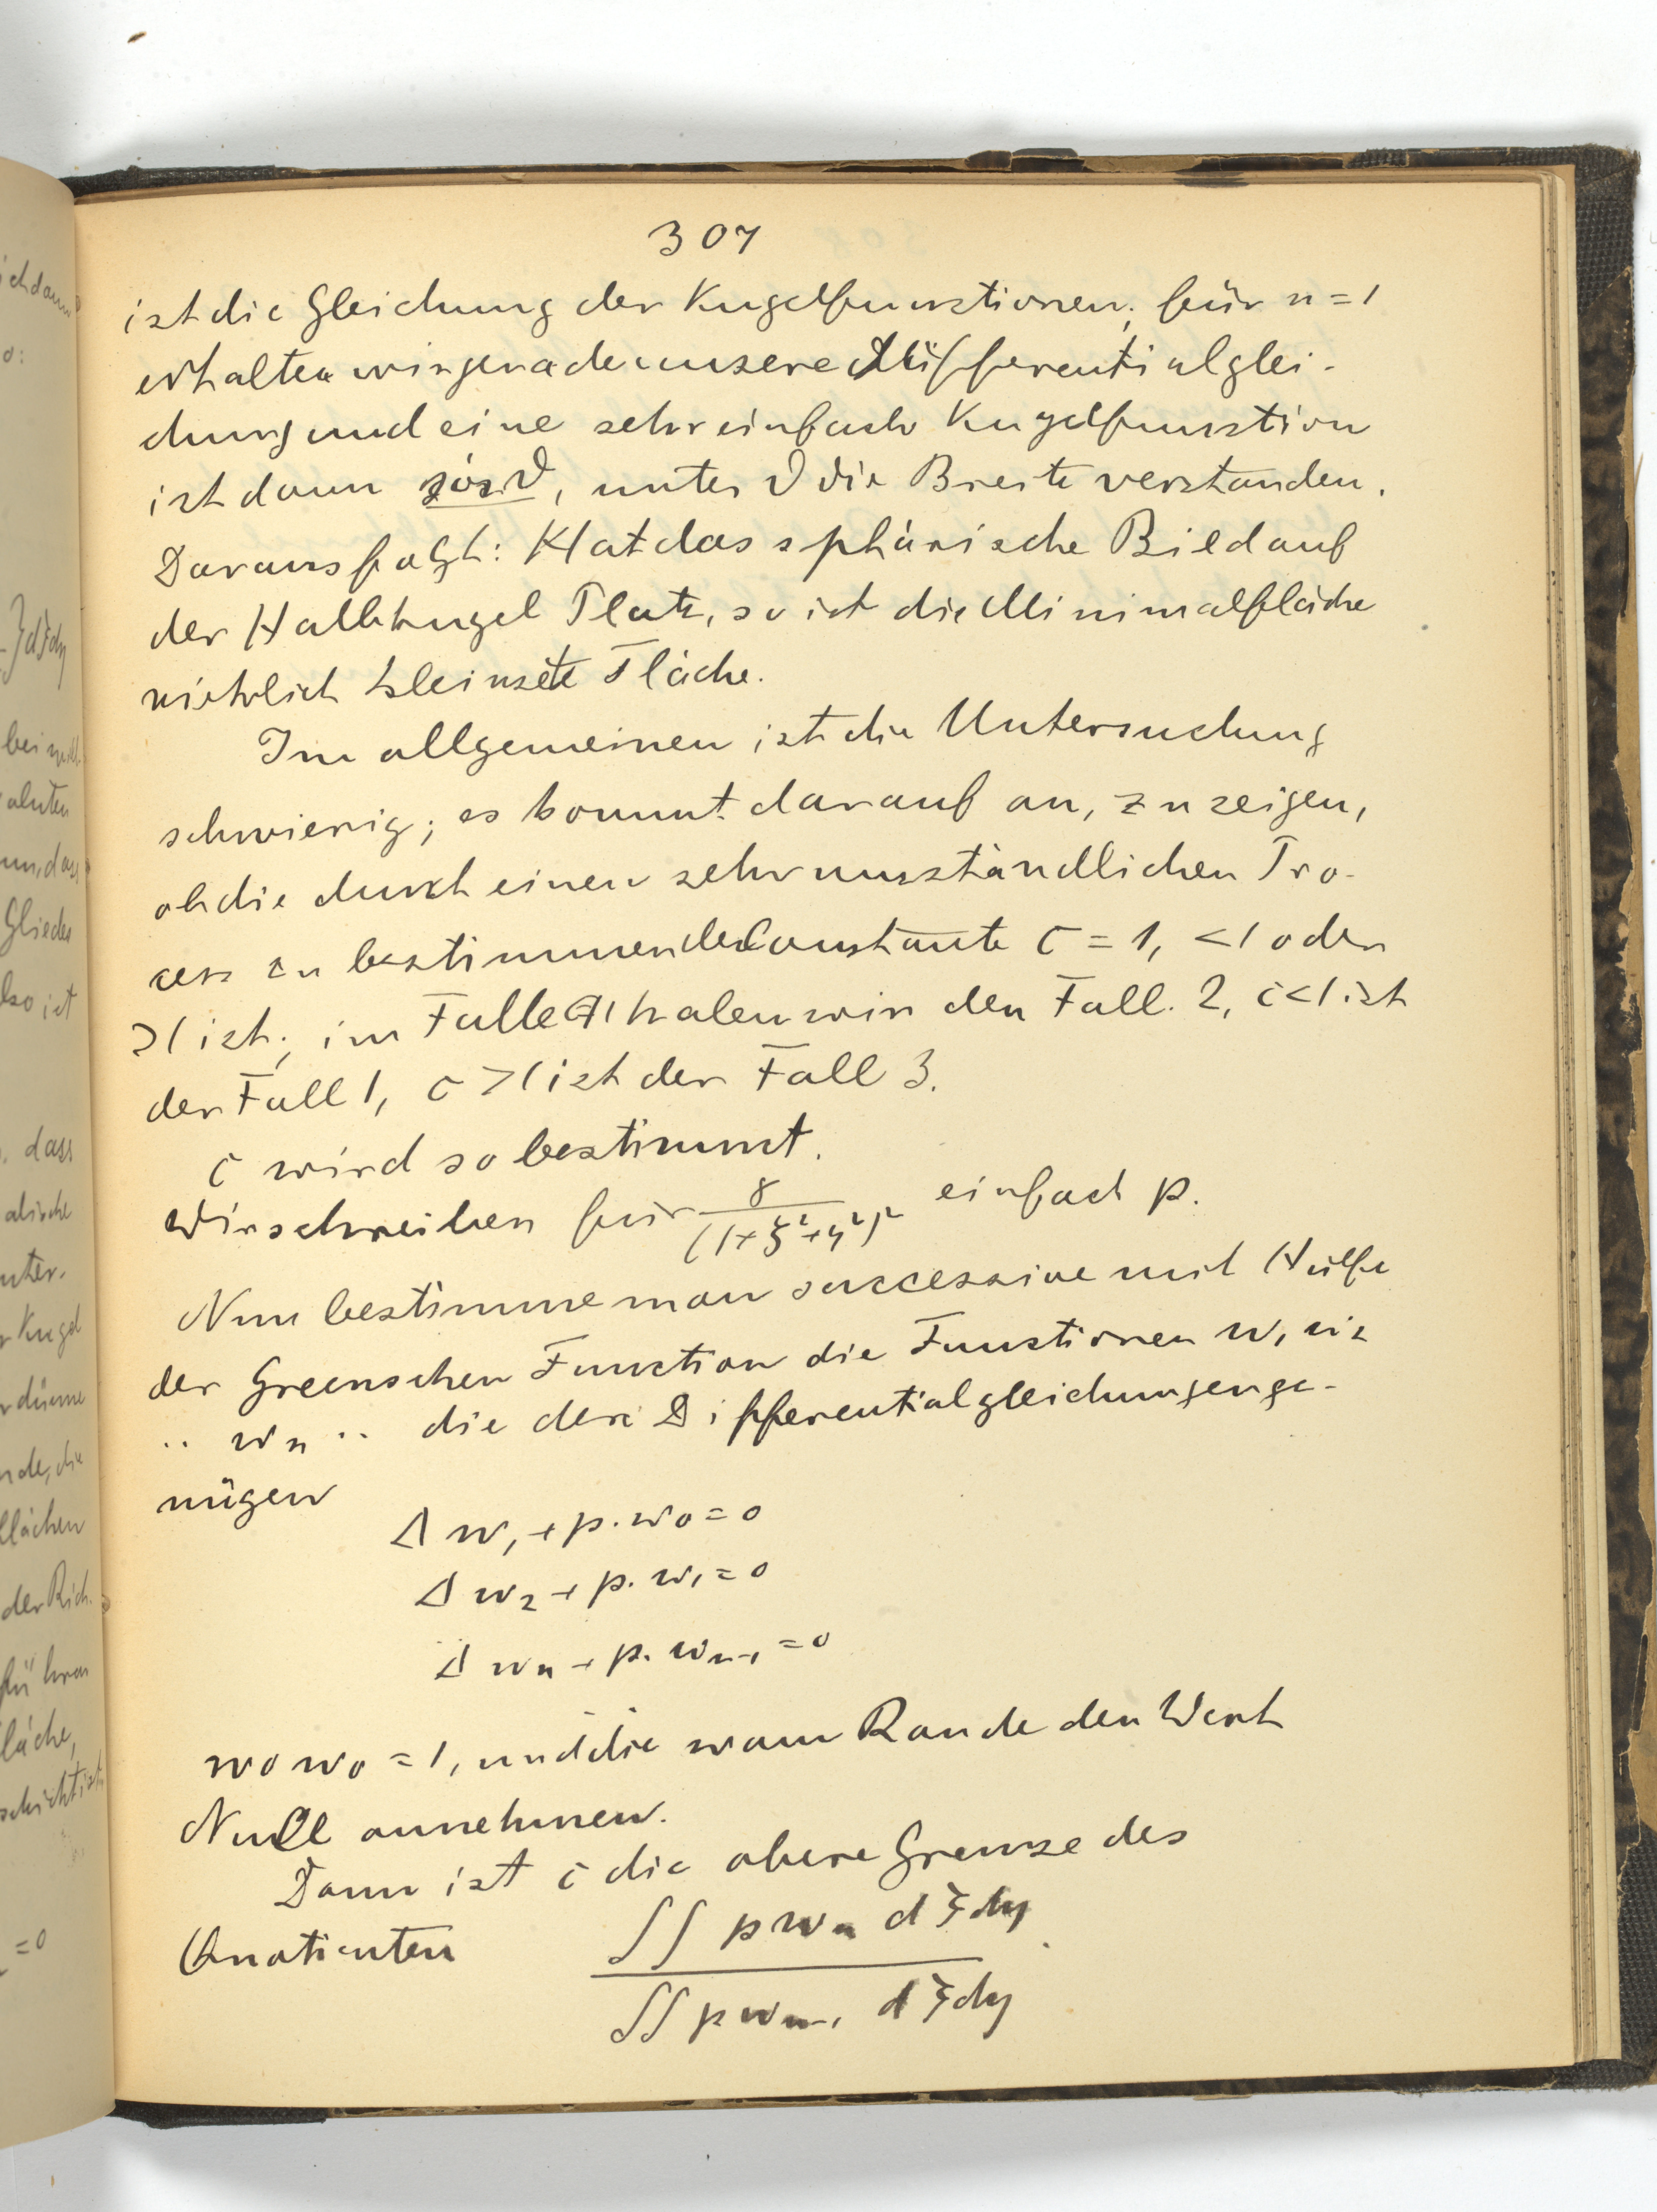 307
ist die Gleichung der Kugelfunktionen; für n = 1
erhalten wir gerade unsere Differentialglei-
chung und eine sehr einfach Kugelfunktion
ist dann sin ϑ, unter ϑ die Breite verstanden.
Daraus folgt: Hat das sphärische Bild auf
der Halbkugel Platz, so ist die Minimalfläche
wirklich kleinste Fläche.
Im allgemeinen ist die Untersuchung
schwierig; es kommt darauf an, zu zeigen,
ob die durch einen sehr umständlichen Pro-
cess zu bestimmende Constante c = 1, < 1 oder
> 1 ist; im Falle 1 haben wir den Fall 2, c < 1 ist
der Fall 1, c > 1 ist der Fall 3.
c wird so bestimmt.
Wir schreiben für 8/(1+ξ²+η²)² einfach p.
Nun bestimme man successive mit Hülfe
der Greenschen Function die Funktionen w₁ w₂
.. wn .. die den Differentialgleichungen ge-
nügen
Δ w₁ + p. w₀ = 0
Δ w₂ + p. w₁ = 0
Δ wn + p. wn-1 = 0
wo w₀ = 1, und die w am Rande den Wert
Null annehmen.
Dann ist c die obere Grenze des
Quotienten ∬ p wn dξdη
∬ p wn-1 dξdη
ichdann
o:
}dξdη
Glieder
lso ist
dass
nter-
r Kugel
lächen
der Rich-
läche,
=0